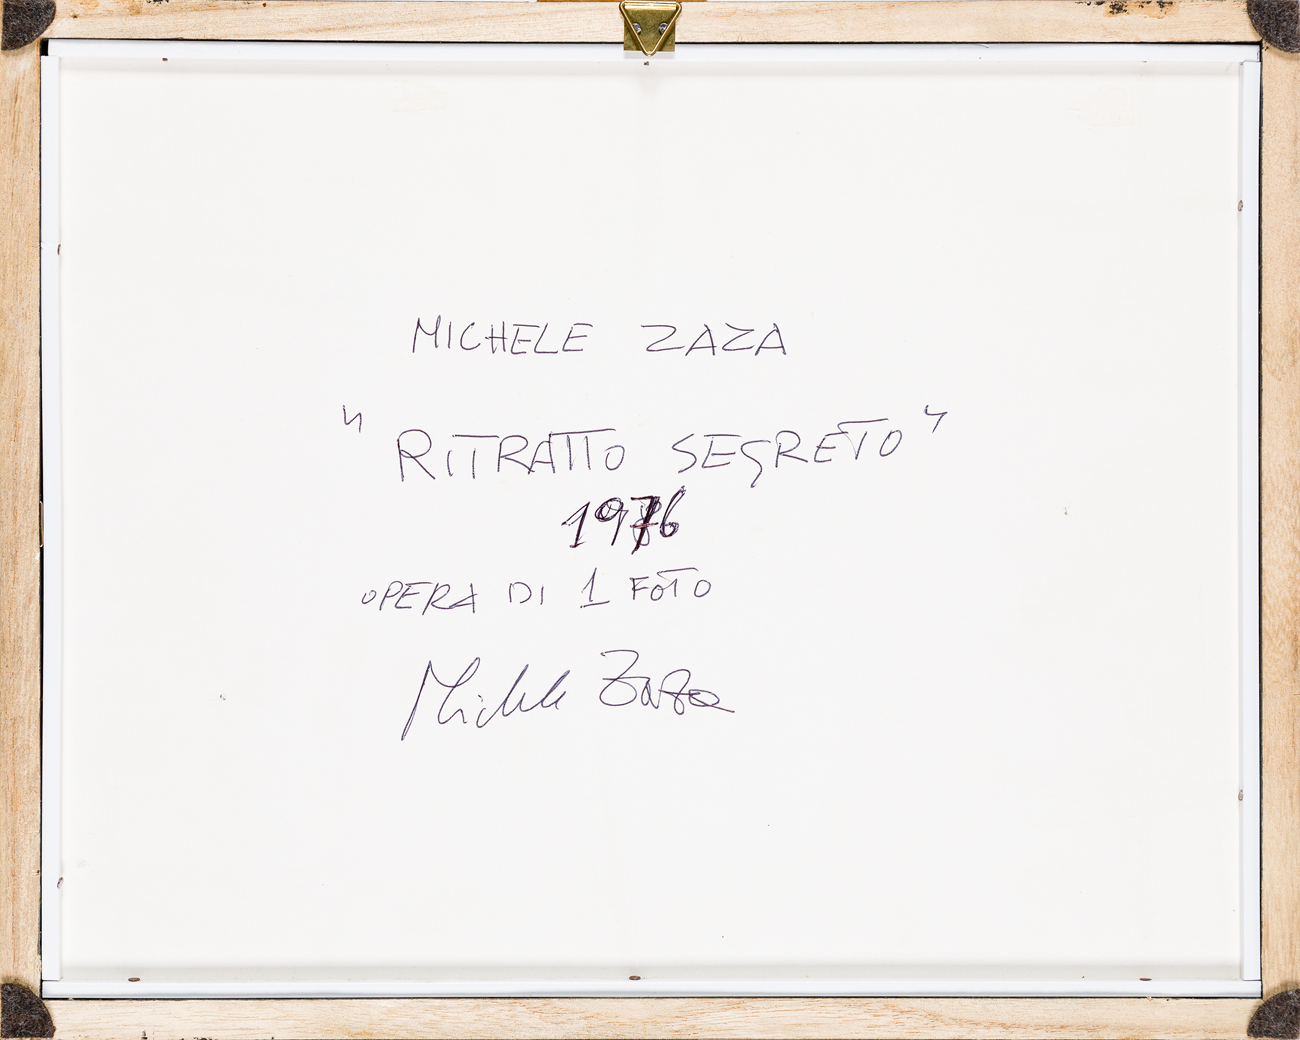 MICHELE ZAZA
"RITRATTO SEGRETO"
1976
OPERA DI 1 FOTO
Michele Zaza